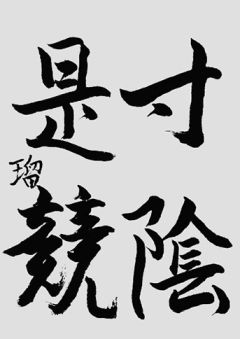 寸陰
是競
瑠